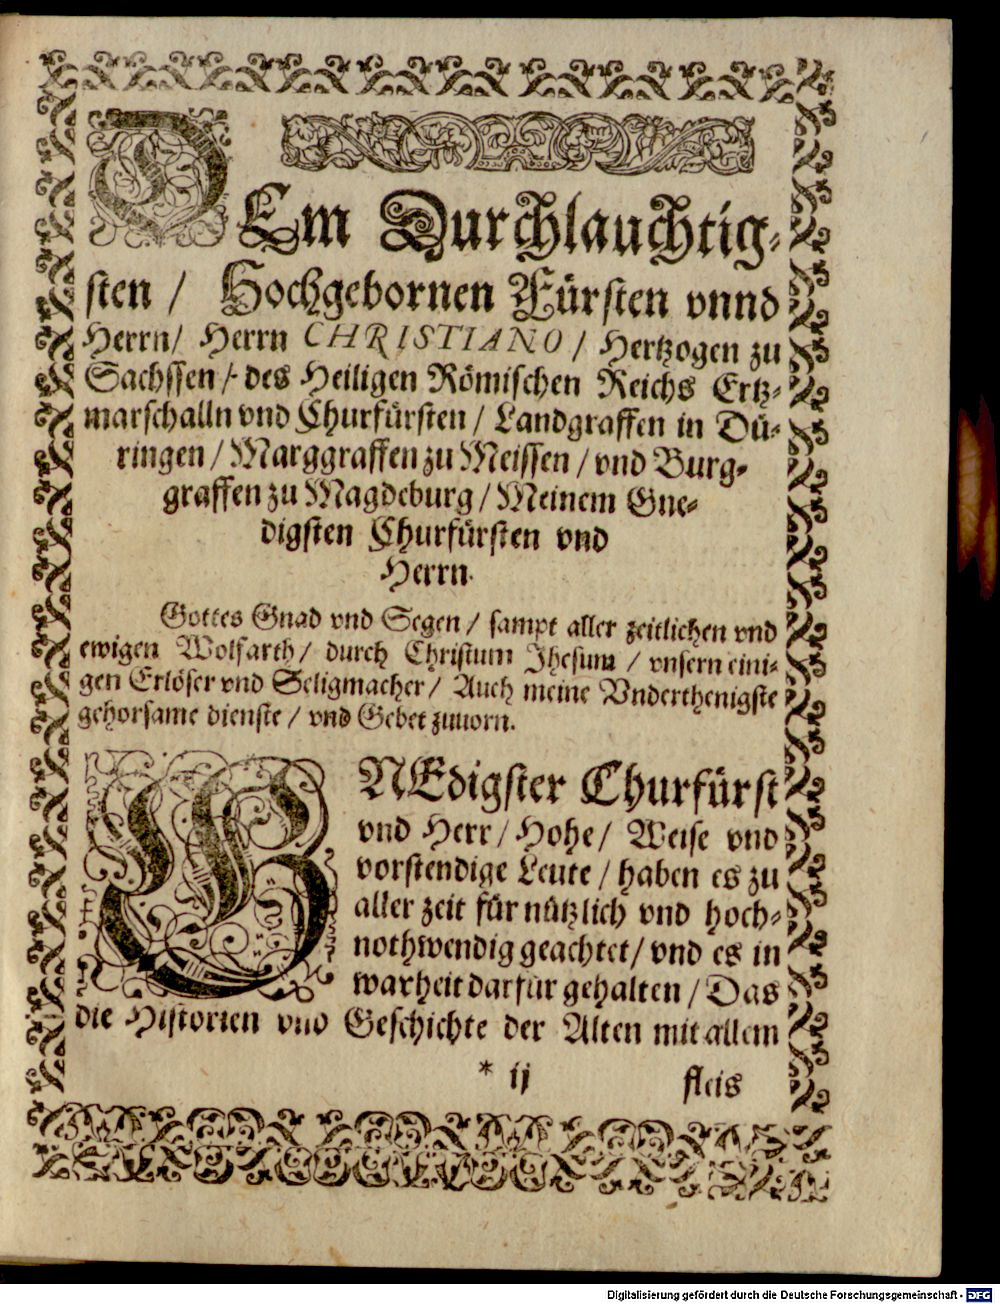 DEm Durchlauchtig-
sten / Hochgebornen Fürsten vnnd
Herrn / Herrn CHRISTIANO / Hertzogen zu
Sachssen / des Heiligen Römischen Reichs Ertz-
marschalln vnd Churfürsten / Landgraffen in Dü-
ringen / Marggraffen zu Meissen / vnd Burg-
graffen zu Magdeburg / Meinem Gne-
digsten Churfürsten vnd
Herrn.
Gottes Gnad vnd Segen / sampt aller zeitlichen vnd
ewigen Wolfarth / durch Christum Jhesum / vnsern eini-
gen Erlöser vnd Seligmacher / Auch meine Vnderthenigste
gehorsame dienste / vnd Gebet zuuorn.
GNEdigster Churfürst
vnd Herr / Hohe / Weise vnd
vorstendige Leute / haben es zu
aller zeit für nützlich vnd hoch-
nothwendig geachtet / vnd es in
warheit darfür gehalten / Das
die Historien vnd Geschichte der Alten mit allem
* ij fleis
Digitalisierung gefördert durch die Deutsche Forschungsgemeinschaft - DFG